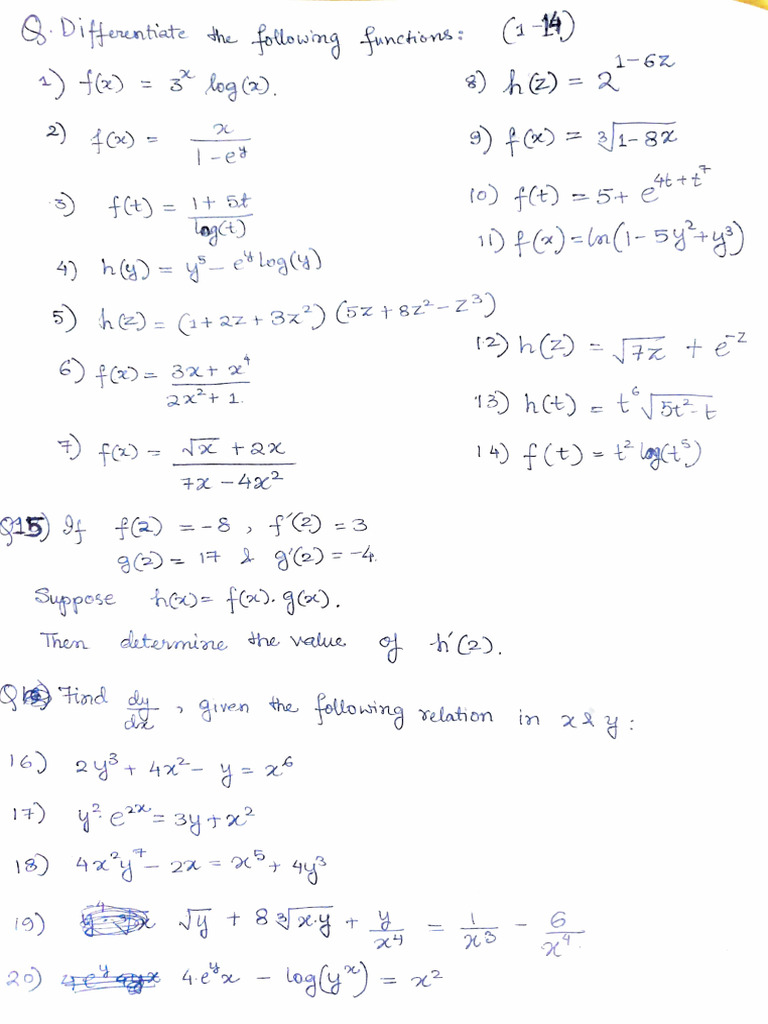 Q. Differentiate the following functions: (1-14)
1) f(x) = 3^x log(x).
2) f(x) = x / (1 - e^y)
3) f(t) = (1 + 5t) / log(t)
4) h(y) = y^5 - e^y log(y)
5) h(z) = (1 + 2z + 3z^2) (5z + 8z^2 - z^3)
6) f(x) = (3x + x^4) / (2x^2 + 1)
7) f(x) = (√x + 2x) / (7x - 4x^2)
8) h(z) = 2^(1-6z)
9) f(x) = ∛(1-8x)
10) f(t) = 5 + e^(4t + t^7)
11) f(x) = ln(1 - 5y^2 + y^3)
12) h(z) = √(7z) + e^-z
13) h(t) = t^6 √(5t^2 - t)
14) f(t) = t^2 log(t^5)
Q15) If f(2) = -8, f'(2) = 3
g(2) = 17 & g'(2) = -4.
Suppose h(x) = f(x). g(x).
Then determine the value of h'(2).
Q Find dy/dx, given the following relation in x & y:
16) 2y^3 + 4x^2 - y = x^6
17) y^2. e^2x = 3y + x^2
18) 4x^2y^7 - 2x = x^5 + 4y^3
19) √y + 8 ∛(x.y) + y/x^4 = 1/x^3 - 6/x^4.
20) 4.e^y x - log(y^x) = x^2